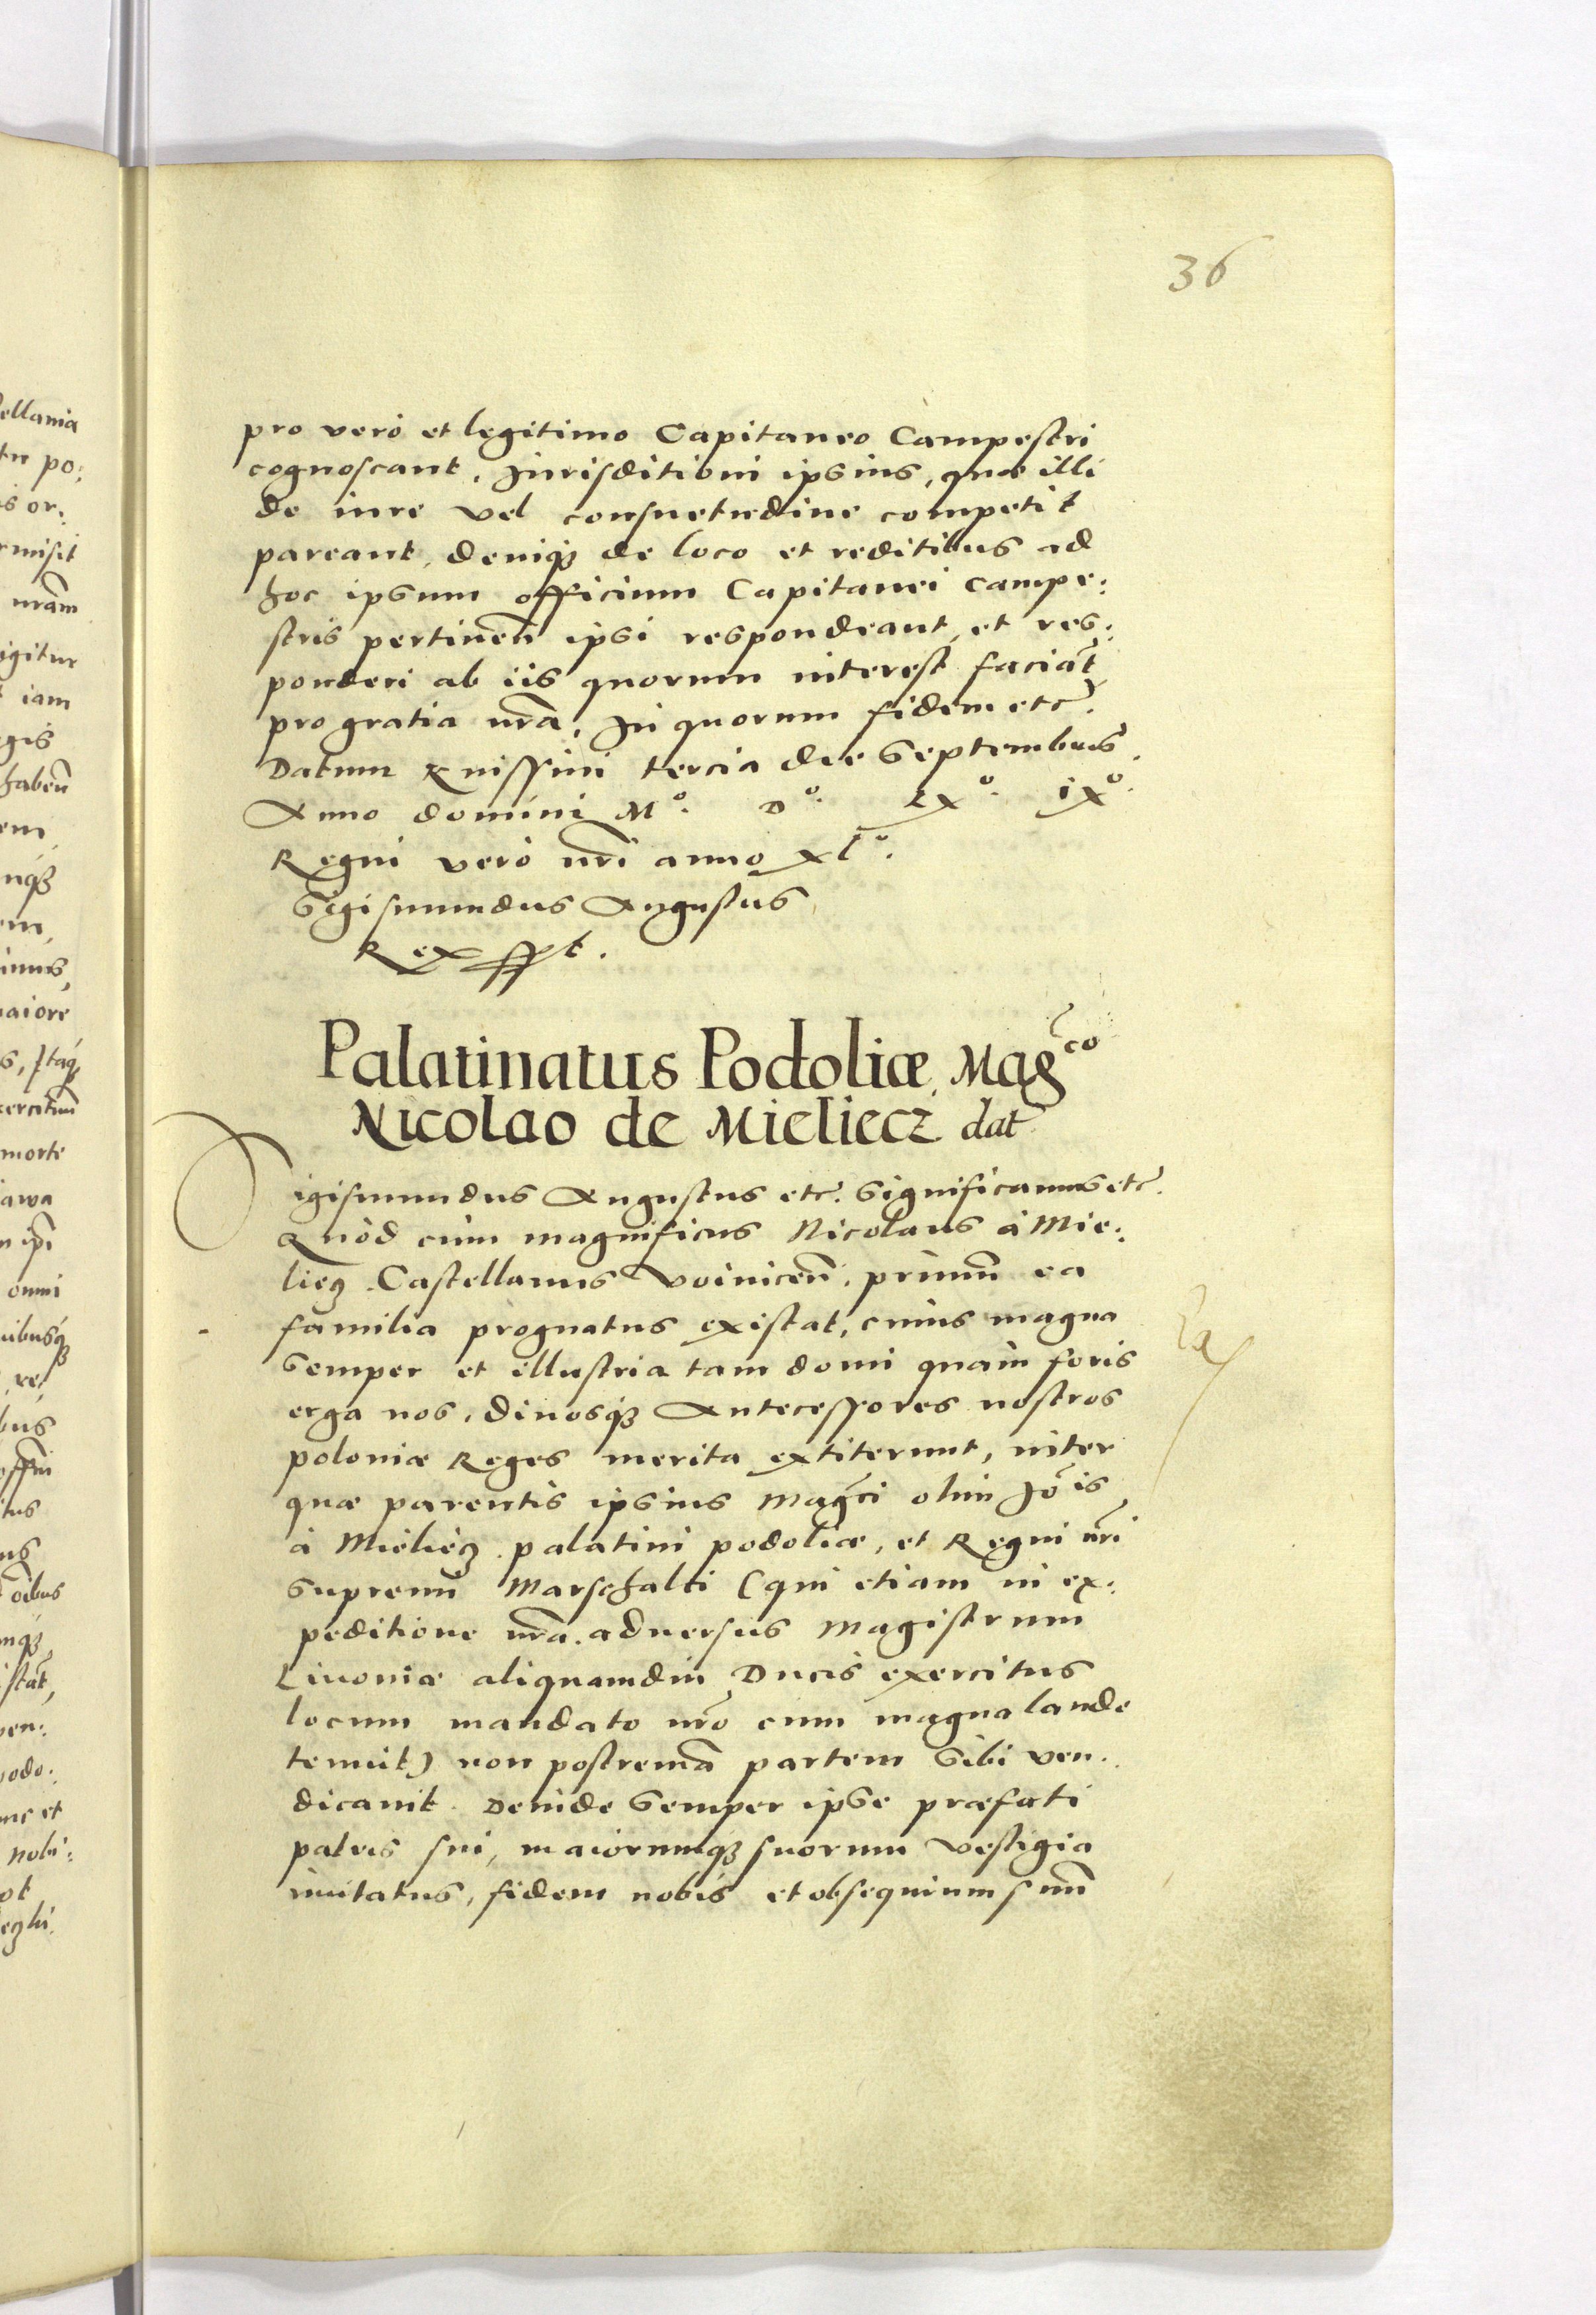 36
pro vero et legitimo Capitaneo Campestri
cognoscant, Jurisditioni ipsius, quæ illi
de iure vel consuetudine competit
pareant, deniqȝ de loco et reditibus ad
hoc ipsum officium Capitanei campe:
stris pertineñ ipsi respondeant, et res:
ponderi ab iis quorum interest faciãt
pro gratia nrã, In quorum fidem etc.
Datum Knissini tercia die Septembris
Anno domini Mº. Dº. LXº. iXº.
Regni vero nri anno xlº.
Sigismundus Augustus
Rex sspt.
Palatinatus Podoliæ, Mag̃co
Nicolao de Mieliecz dat
igismundus Augustus etc. Significamus etc.
Quòd cum magnificus Nicolaus à Mie:
liecz Castellanus Voiniceñ. primũ ea
familia prognatus existat, cuius magna
semper et illustria tam domi quàm foris
erga nos, diuosqȝ Antecessores nostros
poloniæ Reges merita extiterunt, inter
quæ parentis ipsius Mag̃ci olim Jõis
à Mieliecz palatini podoliæ, et Regni nr̃i
Supremi Marschalci (qui etiam in ex:
peditione nrã. aduersùs Magistrum
Liuoniæ aliquamdiu Ducis exercitus
locum mandato nrõ cum magna laude
tenuit) non postremã partem sibi ven:
dicauit. Deinde semper ipse præfati
patris sui, maiorumqȝ suorum vestigia
imitatus, fidem nobis et obsequium suũ